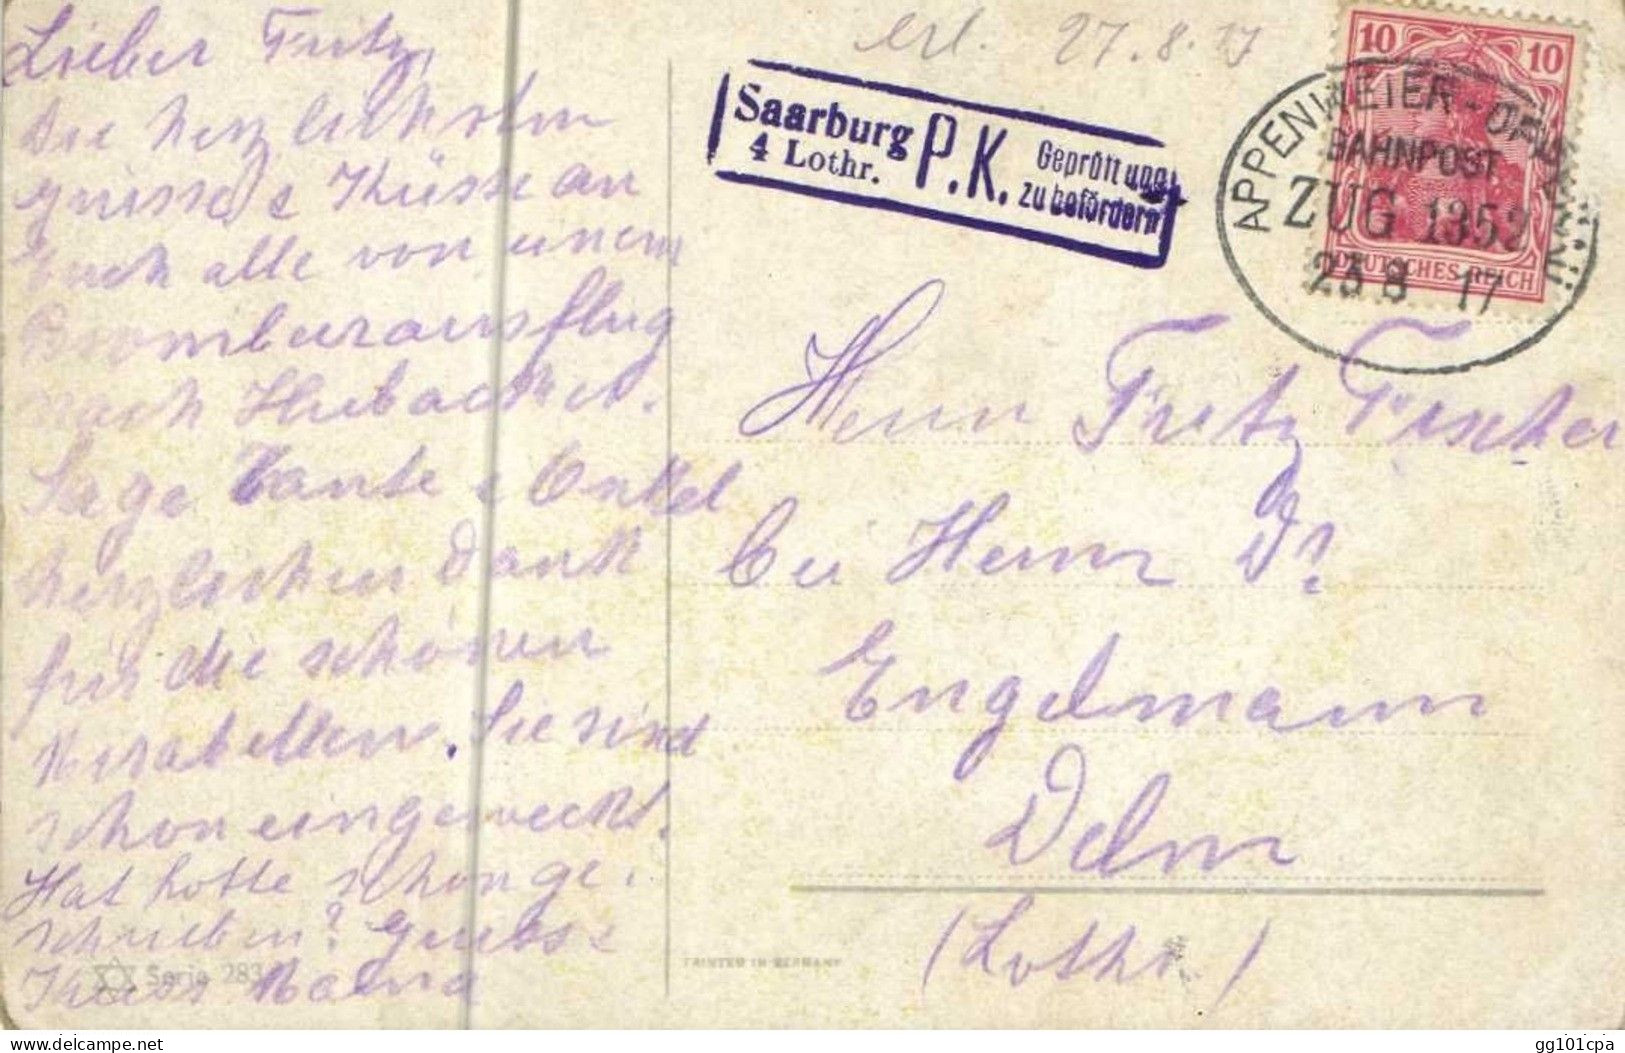 erl. 27.8.17
10 10
DEUTSCHES REICH
APPENWEIER-
BAHNPOST
ZUG 1352
23 8 17
Saarburg
4 Lothr.
P.K.
Geprüft und
zu befördern
Lieber Fritz,
Die herzlichsten
Grüsse & Küsse an
Euch alle von einem
nach
Sage Tante & Onkel
herzlichen Dank
für die schönen
Mirabellen. Sie sind
schon eingeweckt.
Hat Lotte schon ge-
schrieben? Grüsse
Küsse Mama
Serie 283
PRINTED IN GERMANY
Herrn Fritz Fischer
bei Herrn Dr
Engelmann
Delm
(Lothr.)
delcampe.net
gg101cpa